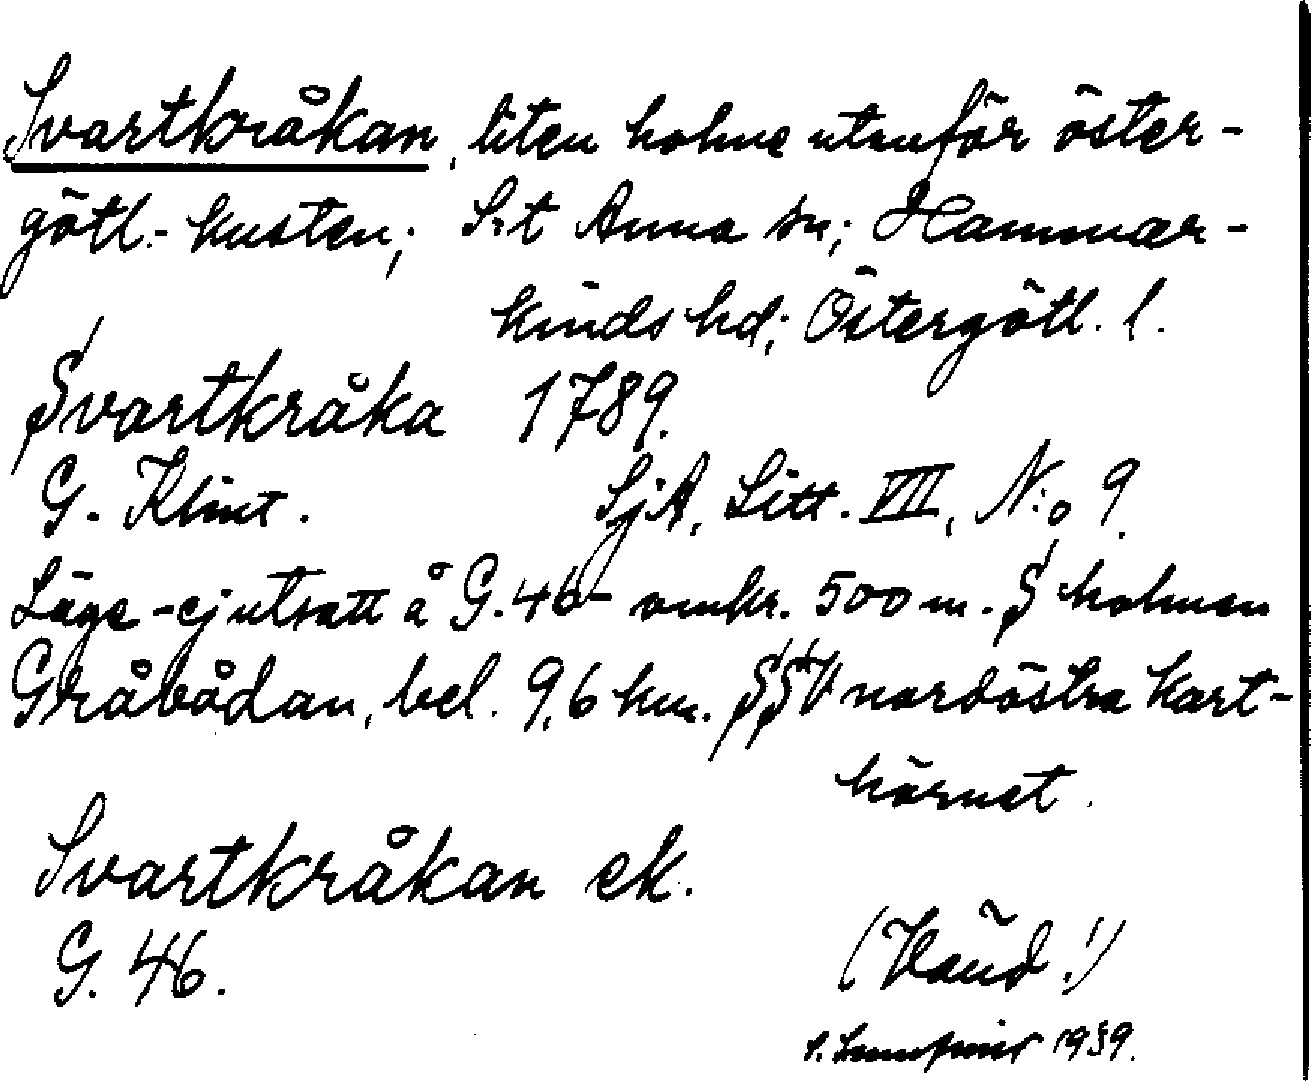 Svartkråkan, liten holme utanför öster-
götl.-kusten; S:t Anna sn; Hammar-
kinds hd; Östergötl. l.
Svartkråka 1789.
G. Klint. SjA, Litt. VIII, N:o 9.
Läge - ej utsatt å G. 46 - omkr. 500 m. S holmen
Gråbådan, bel. 9,6 km. SSV nordöstra kart-
hörnet.
Svartkråkan ek.
G. 46.
(Vänd!)
1939.